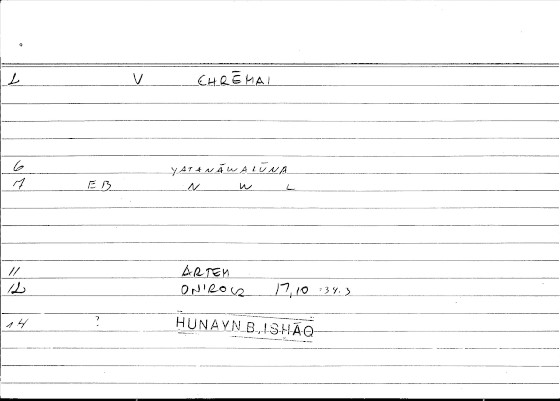 1 V CHRĒMAI
6 YATANĀWALŪNA
7 EB N W L
11 ARTEM
12 ONIROCR 17,10 :34.3
14 ? HUNAYN B. ISHĀQ